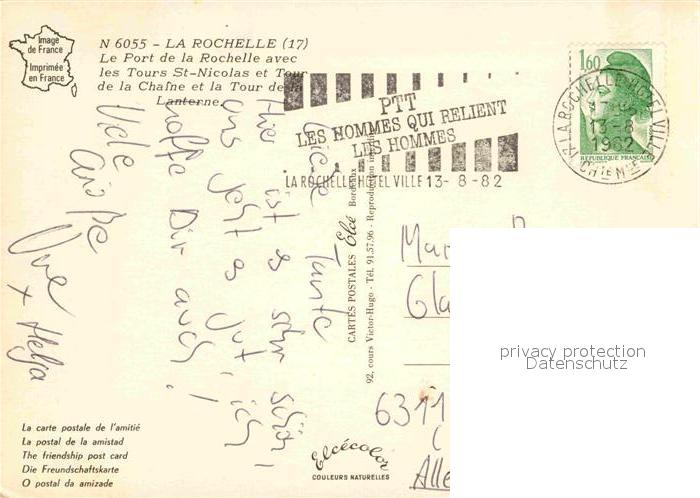 Image
de France
Imprimée
en France
N 6055 - LA ROCHELLE (17)
Le Port de la Rochelle avec
les Tours St-Nicolas et Tour
de la Chaîne et la Tour de la
Lanterne.
PTT
LES HOMMES QUI RELIENT
LES HOMMES
LA ROCHELLE HOTEL VILLE 13-8-82
1,60
LA ROCHELLE-HOTEL VILLE
13-8
1982
REPUBLIQUE FRANÇAISE
Liebe Tante
Hier ist es sehr schön,
uns geht es gut, ich
hoffe Dir auch!
Viele
Grüße
Uwe
+ Helga
CARTES POSTALES Elcé Bordeaux
92, cours Victor-Hugo - Tél. 91.57.96 - Reproduction
6311
Alle
privacy protection
Datenschutz
La carte postale de l'amitié
La postal de la amistad
The friendship post card
Die Freundschaftskarte
O postal da amizade
Elcécolor
COULEURS NATURELLES